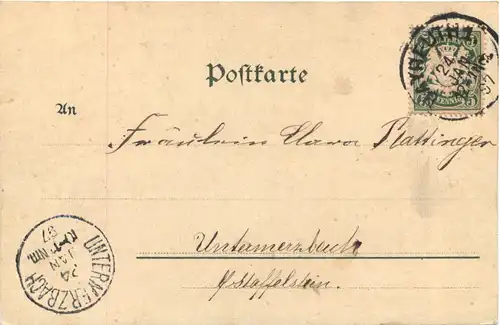 Postkarte
An
Fräulein Clara Plattinger
Untermerzbach
b/Staffelstein.
24
JAN
97
PFENNIG
5
UNTERMERZBACH
24
JAN
97